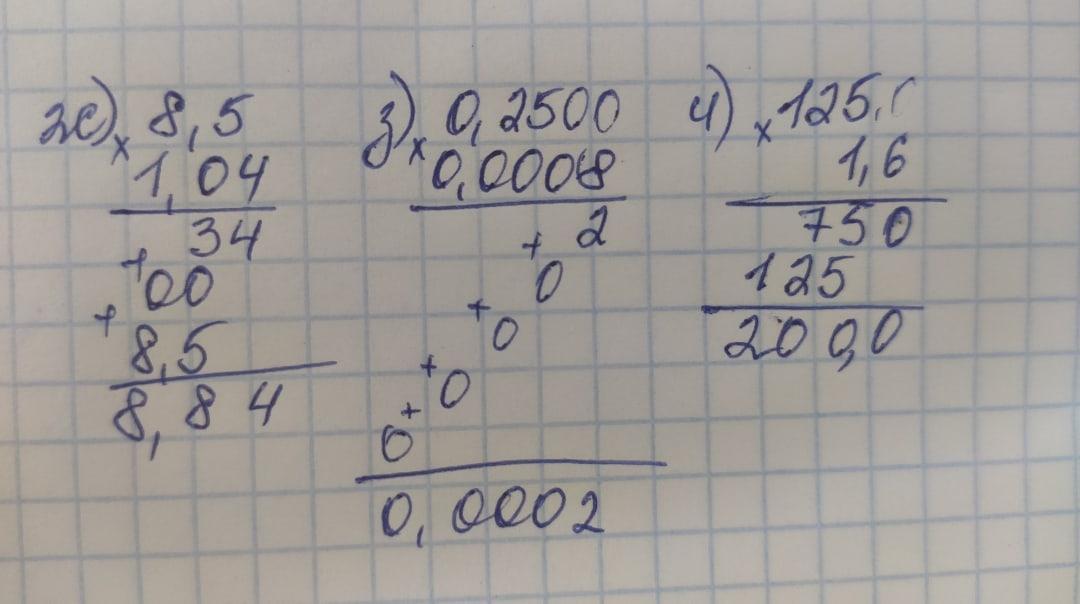 ж) × 8,5
1,04
34
+ 00
+ 8,5
8,84
з) × 0,2500
0,0008
2
+ 0
+ 0
+ 0
+ 0
0,0002
и) × 125,
1,6
750
125
200,0